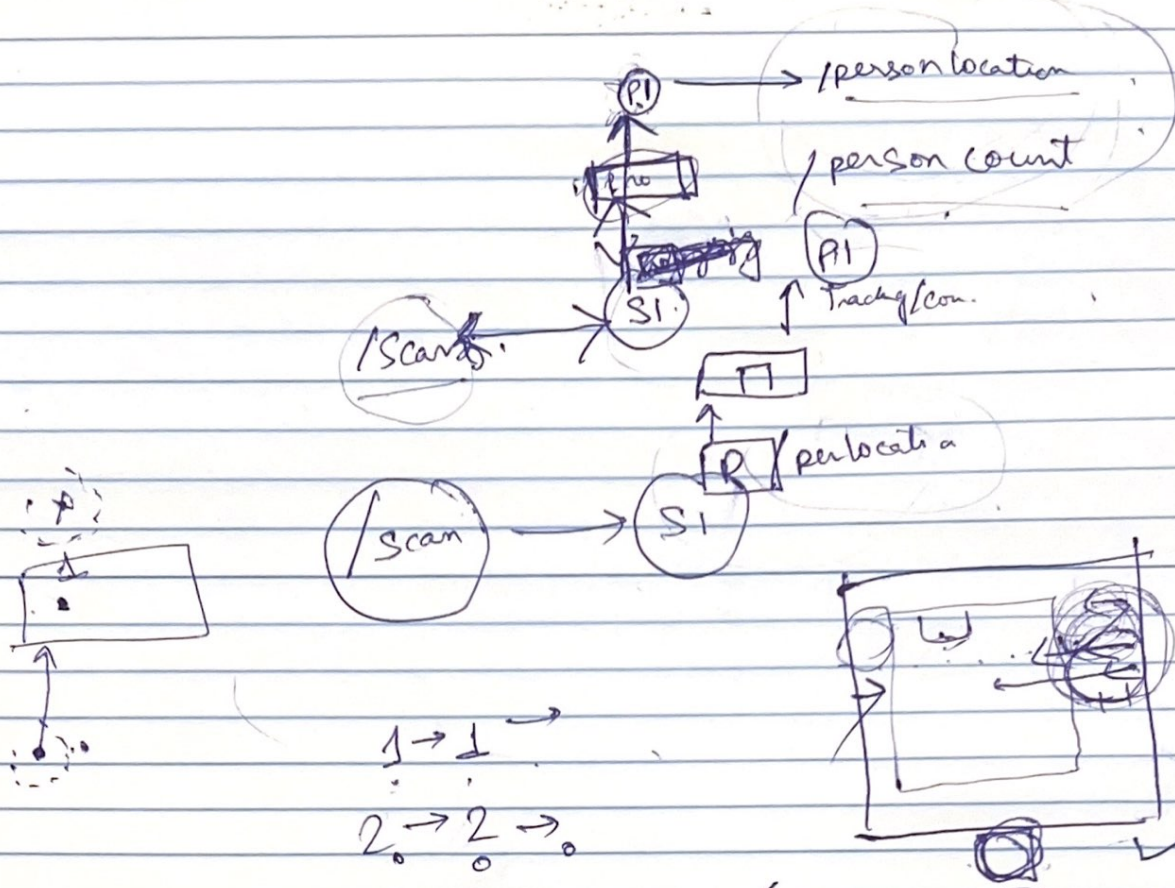 P.1
/personlocation
/person count
P.1
S1.
/Scan
Tracking/con.
P
/perlocatia
/Scan
S1
1
1 → 1 →
2 → 2 →